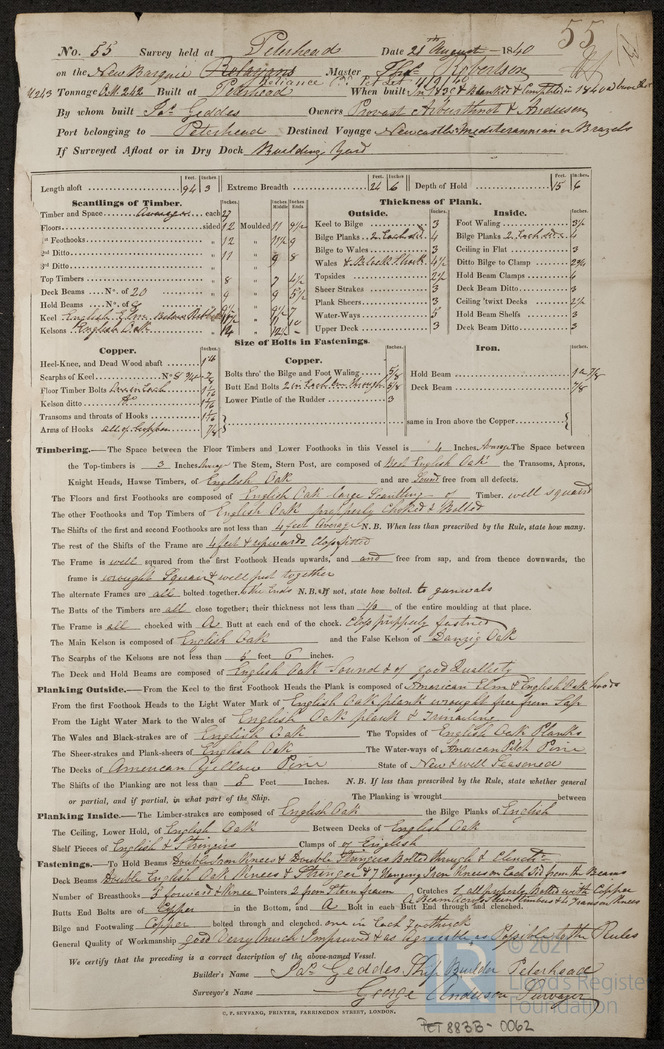 55
No. 55 Survey held at Peterhead Date 21st August 1840
on the New Barque Master Thos. Robertson
Tonnage O.M. 242 Built at Peterhead When built
By whom built Jas. Geddes Owners Provost Arbuthnot & Anderson
Port belonging to Peterhead Destined Voyage Newcastle Mediterannean or Brazils
If Surveyed Afloat or in Dry Dock Building Yard
Feet. Inches. Feet. Inches. Feet. Inches.
Length aloft 94 3 Extreme Breadth 24 6 Depth of Hold 15 6
Scantlings of Timber.
Timber and Space each 27
Floors sided 12 Moulded 11
1st Foothooks 12
2nd Ditto 11 9 8
3rd Ditto
Top Timbers 8 7 4½
Deck Beams No. of 20 9 9 5½
Hold Beams No. of 8
Keel English Elm
Kelsons English Oak
Thickness of Plank.
Outside.
Keel to Bilge 3
Bilge Planks 2 Each side 4
Bilge to Wales 3
Wales & Black Strak 4½
Topsides 2½
Sheer Strakes 3
Plank Sheers 3
Water-Ways 5
Upper Deck 3
Inside.
Foot Waling
Bilge Planks 2 Each side 4
Ceiling in Flat 3
Ditto Bilge to Clamp
Hold Beam Clamps 4
Deck Beam Ditto 3
Ceiling 'twixt Decks 2½
Hold Beam Shelfs 3
Deck Beam Ditto 3
Size of Bolts in Fastenings.
Copper.
Heel-Knee, and Dead Wood abaft
Scarphs of Keel
Floor Timber Bolts
Kelson ditto Do
Transoms and throats of Hooks
Arms of Hooks all of Copper 7/8
Copper.
Bolts thro' the Bilge and Foot Waling 5/8
Butt End Bolts 5/8
Lower Pintle of the Rudder 3
Iron.
Hold Beam
Deck Beam 7/8
same in Iron above the Copper
Timbering.—The Space between the Floor Timbers and Lower Foothooks in this Vessel is 4 Inches, Average. The Space between
the Top-timbers is 3 Inches Average The Stem, Stern Post, are composed of Best English Oak the Transoms, Aprons,
Knight Heads, Hawse Timbers, of English Oak and are Sound free from all defects.
The Floors and first Foothooks are composed of English Oak large Scantling of Timber. well squared
The other Foothooks and Top Timbers of English Oak properly Choked & Bolted
The Shifts of the first and second Foothooks are not less than 4 feet average N.B. When less than prescribed by the Rule, state how many.
The rest of the Shifts of the Frame are 4 feet & upwards Close fitted
The Frame is well squared from the first Foothook Heads upwards, and and free from sap, and from thence downwards, the
frame is wrought Square & well put together
The alternate Frames are all bolted together to the Ends N.B. If not, state how bolted. to gunwals
The Butts of the Timbers are all close together; their thickness not less than 1/3 of the entire moulding at that place.
The Frame is all chocked with A Butt at each end of the chock. Close properly fastned
The Main Kelson is composed of English Oak and the False Kelson of Danzig Oak
The Scarphs of the Kelsons are not less than 5 feet 6 inches.
The Deck and Hold Beams are composed of English Oak Sound & of good Quality
Planking Outside.—From the Keel to the first Foothook Heads the Plank is composed of American Elm & English Oak
From the first Foothook Heads to the Light Water Mark of English Oak plank wrought free from Sap
From the Light Water Mark to the Wales of English Oak plank &
The Wales and Black-strakes are of English Oak The Topsides of English Oak Planks
The Sheer-strakes and Plank-sheers of English Oak The Water-ways of American Pitch Pine
The Decks of American Yellow Pine State of New & well Seasoned
The Shifts of the Planking are not less than 5 Feet Inches. N.B. If less than prescribed by the Rule, state whether general
or partial, and if partial, in what part of the Ship. The Planking is wrought between
Planking Inside.—The Limber-strakes are composed of English Oak the Bilge Planks of English
The Ceiling, Lower Hold, of English Oak Between Decks of English Oak
Shelf Pieces of English & Stringers Clamps of of English
Fastenings.—To Hold Beams Double Iron Knees & Double Stringers Bolted through & Clinchd
Deck Beams Double English Oak Knees & Stringer & 7 Hanging Iron Knees on Each Side from the Beams
Number of Breasthooks 5 forward Pointers 2 from Stern fraim Crutches 1, all properly Bolted with Copper
Butts End Bolts are of Copper in the Bottom, and A Bolt in each Butt End through and clenched.
Bilge and Footwaling Copper bolted through and clenched. one in Each Foothook
General Quality of Workmanship good Very much Improved & as agreeable as Possible to the Rules
We certify that the preceding is a correct description of the above-named Vessel.
Builder's Name Jas. Geddes Ship Builder Peterhead
Surveyor's Name George Anderson Surveyor
C. F. SEYFANG, PRINTER, FARRINGDON STREET, LONDON.
PET 8833-0062
© 2021
Lloyd's Register
Foundation